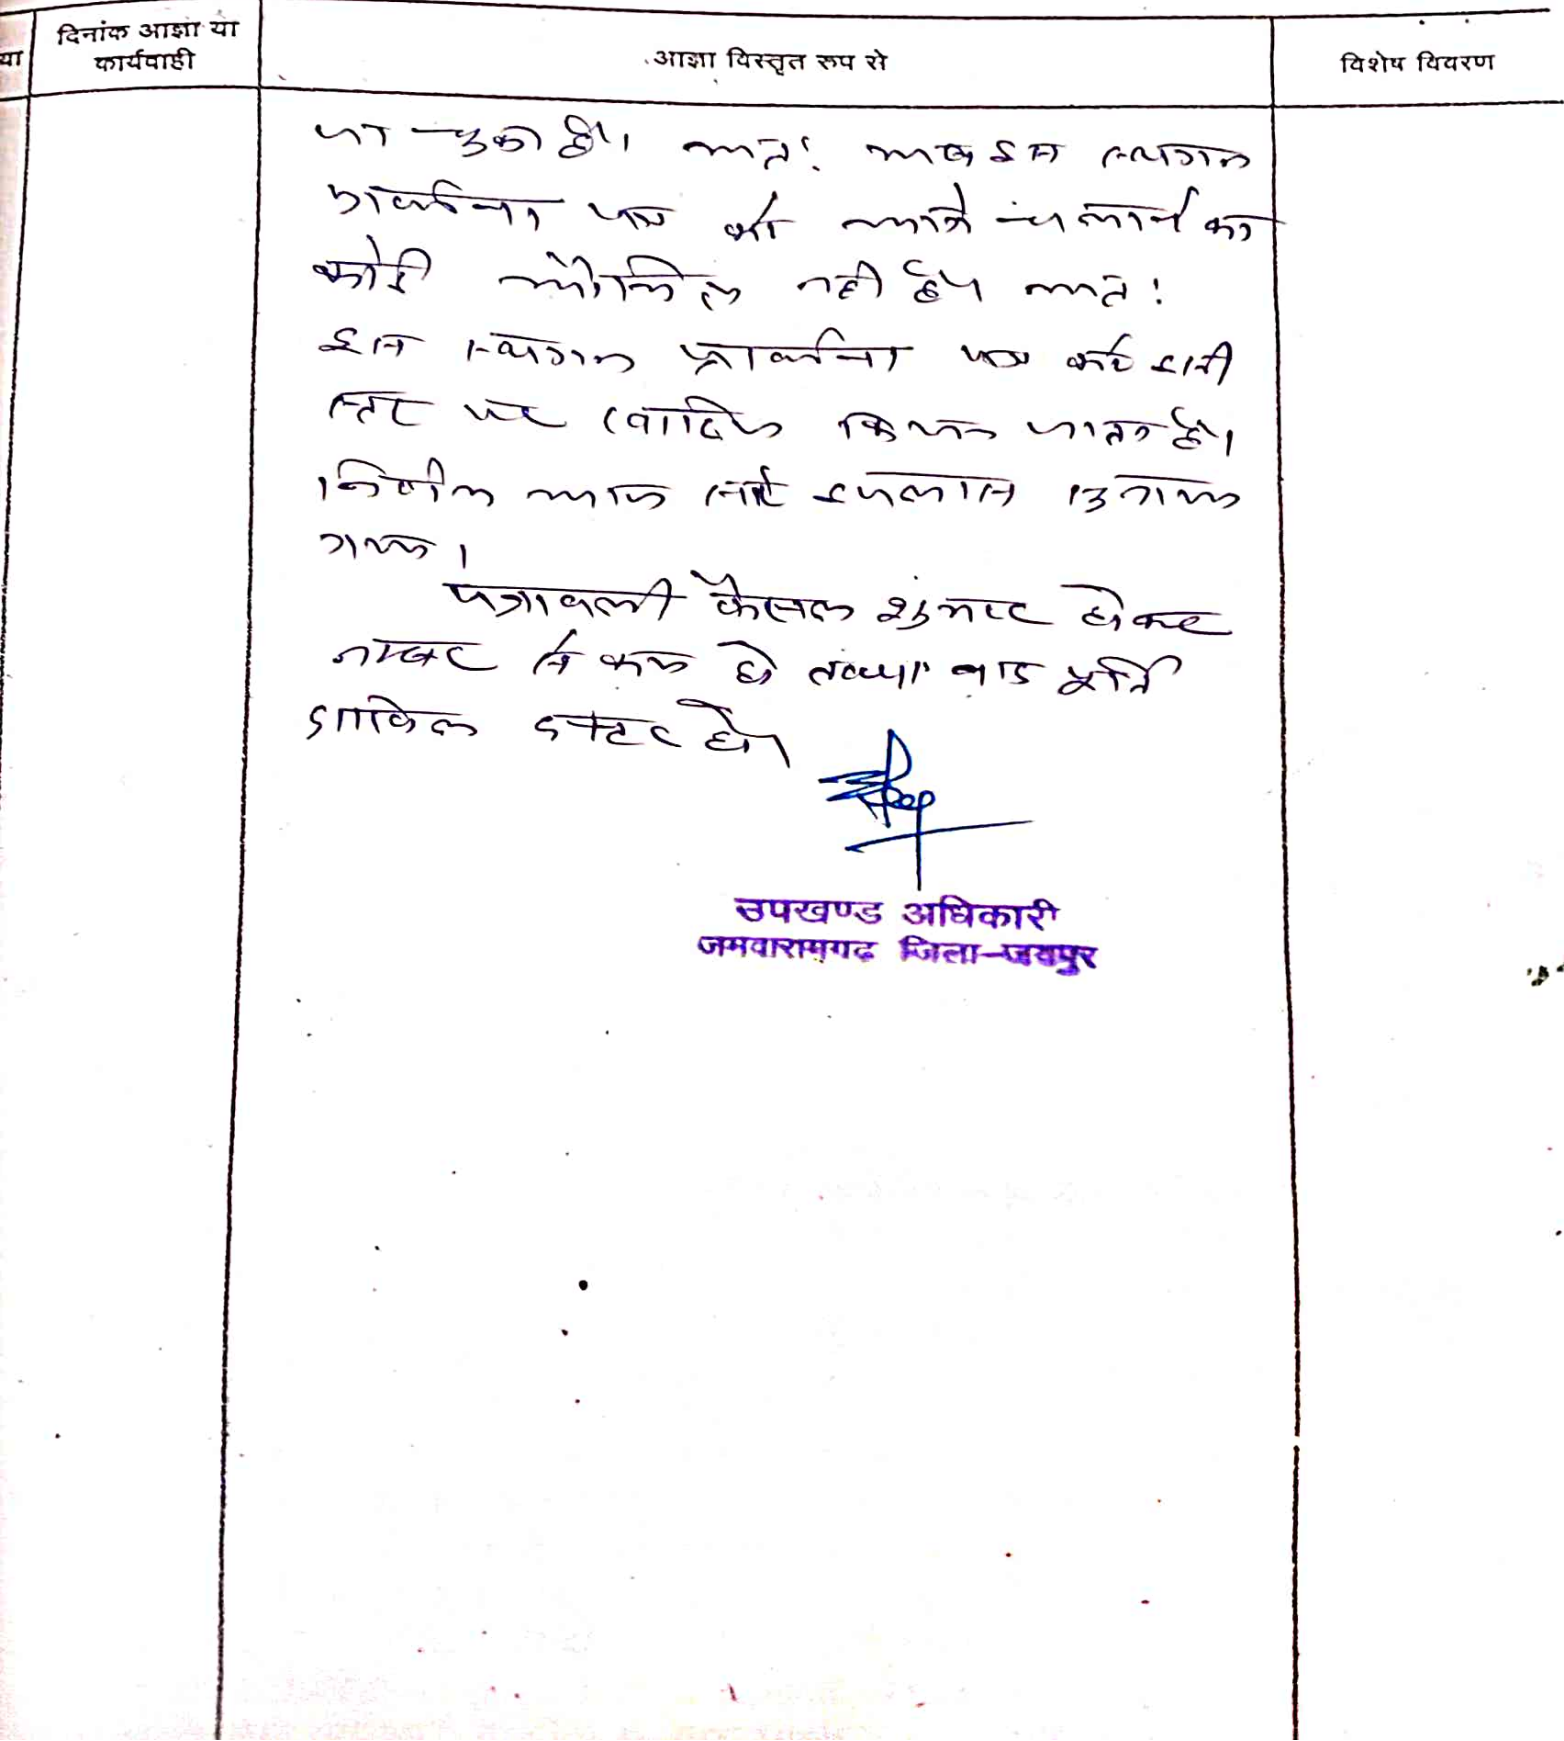 दिनांक आज्ञा या
कार्यवाही
या
आज्ञा विस्तृत रूप से
विशेष विवरण
जा चुका है। अतः अब इस स्थगन
प्रार्थना पत्र को आगे चलाने का
कोई औचित्य नही है। अतः
इस स्थगन प्रार्थना पत्र को इसी
स्तर पर खारिज किया जाता है।
निर्णय आज सरे इजलास सुनाया
गया।
पत्रावली फैसल शुमार होकर
नम्बर से कम हो तथा बाद पूर्ति
दाखिल दफ्तर हो।
उपखण्ड अधिकारी
जमवारामगढ जिला-जयपुर